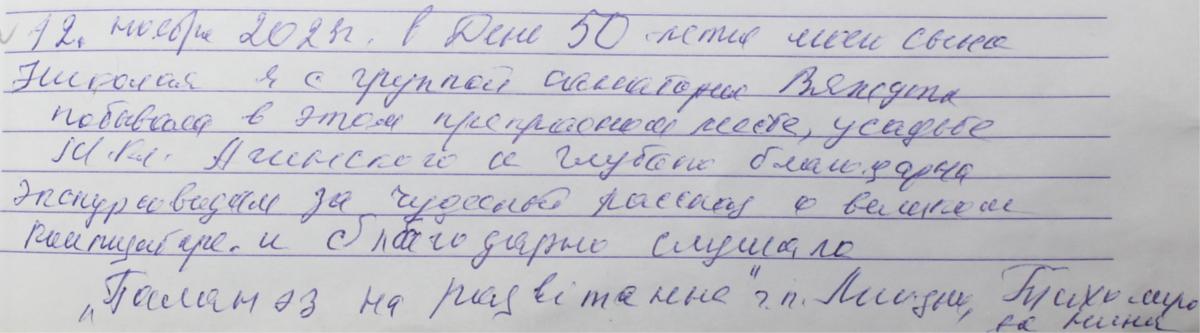 12. ноября 2023г. в День 50-летия моего сына
Николая я с группой санатория Вяжути
побывала в этом прекрасном месте, усадьбе
М.Кл. Агинского и глубоко благодарна
экскурсоводам за чудесный рассказ о великом
композиторе. и благодарно слушала
„Паланэз на развітанне" г.п. Лиозно, Тихомиро
ва Нина